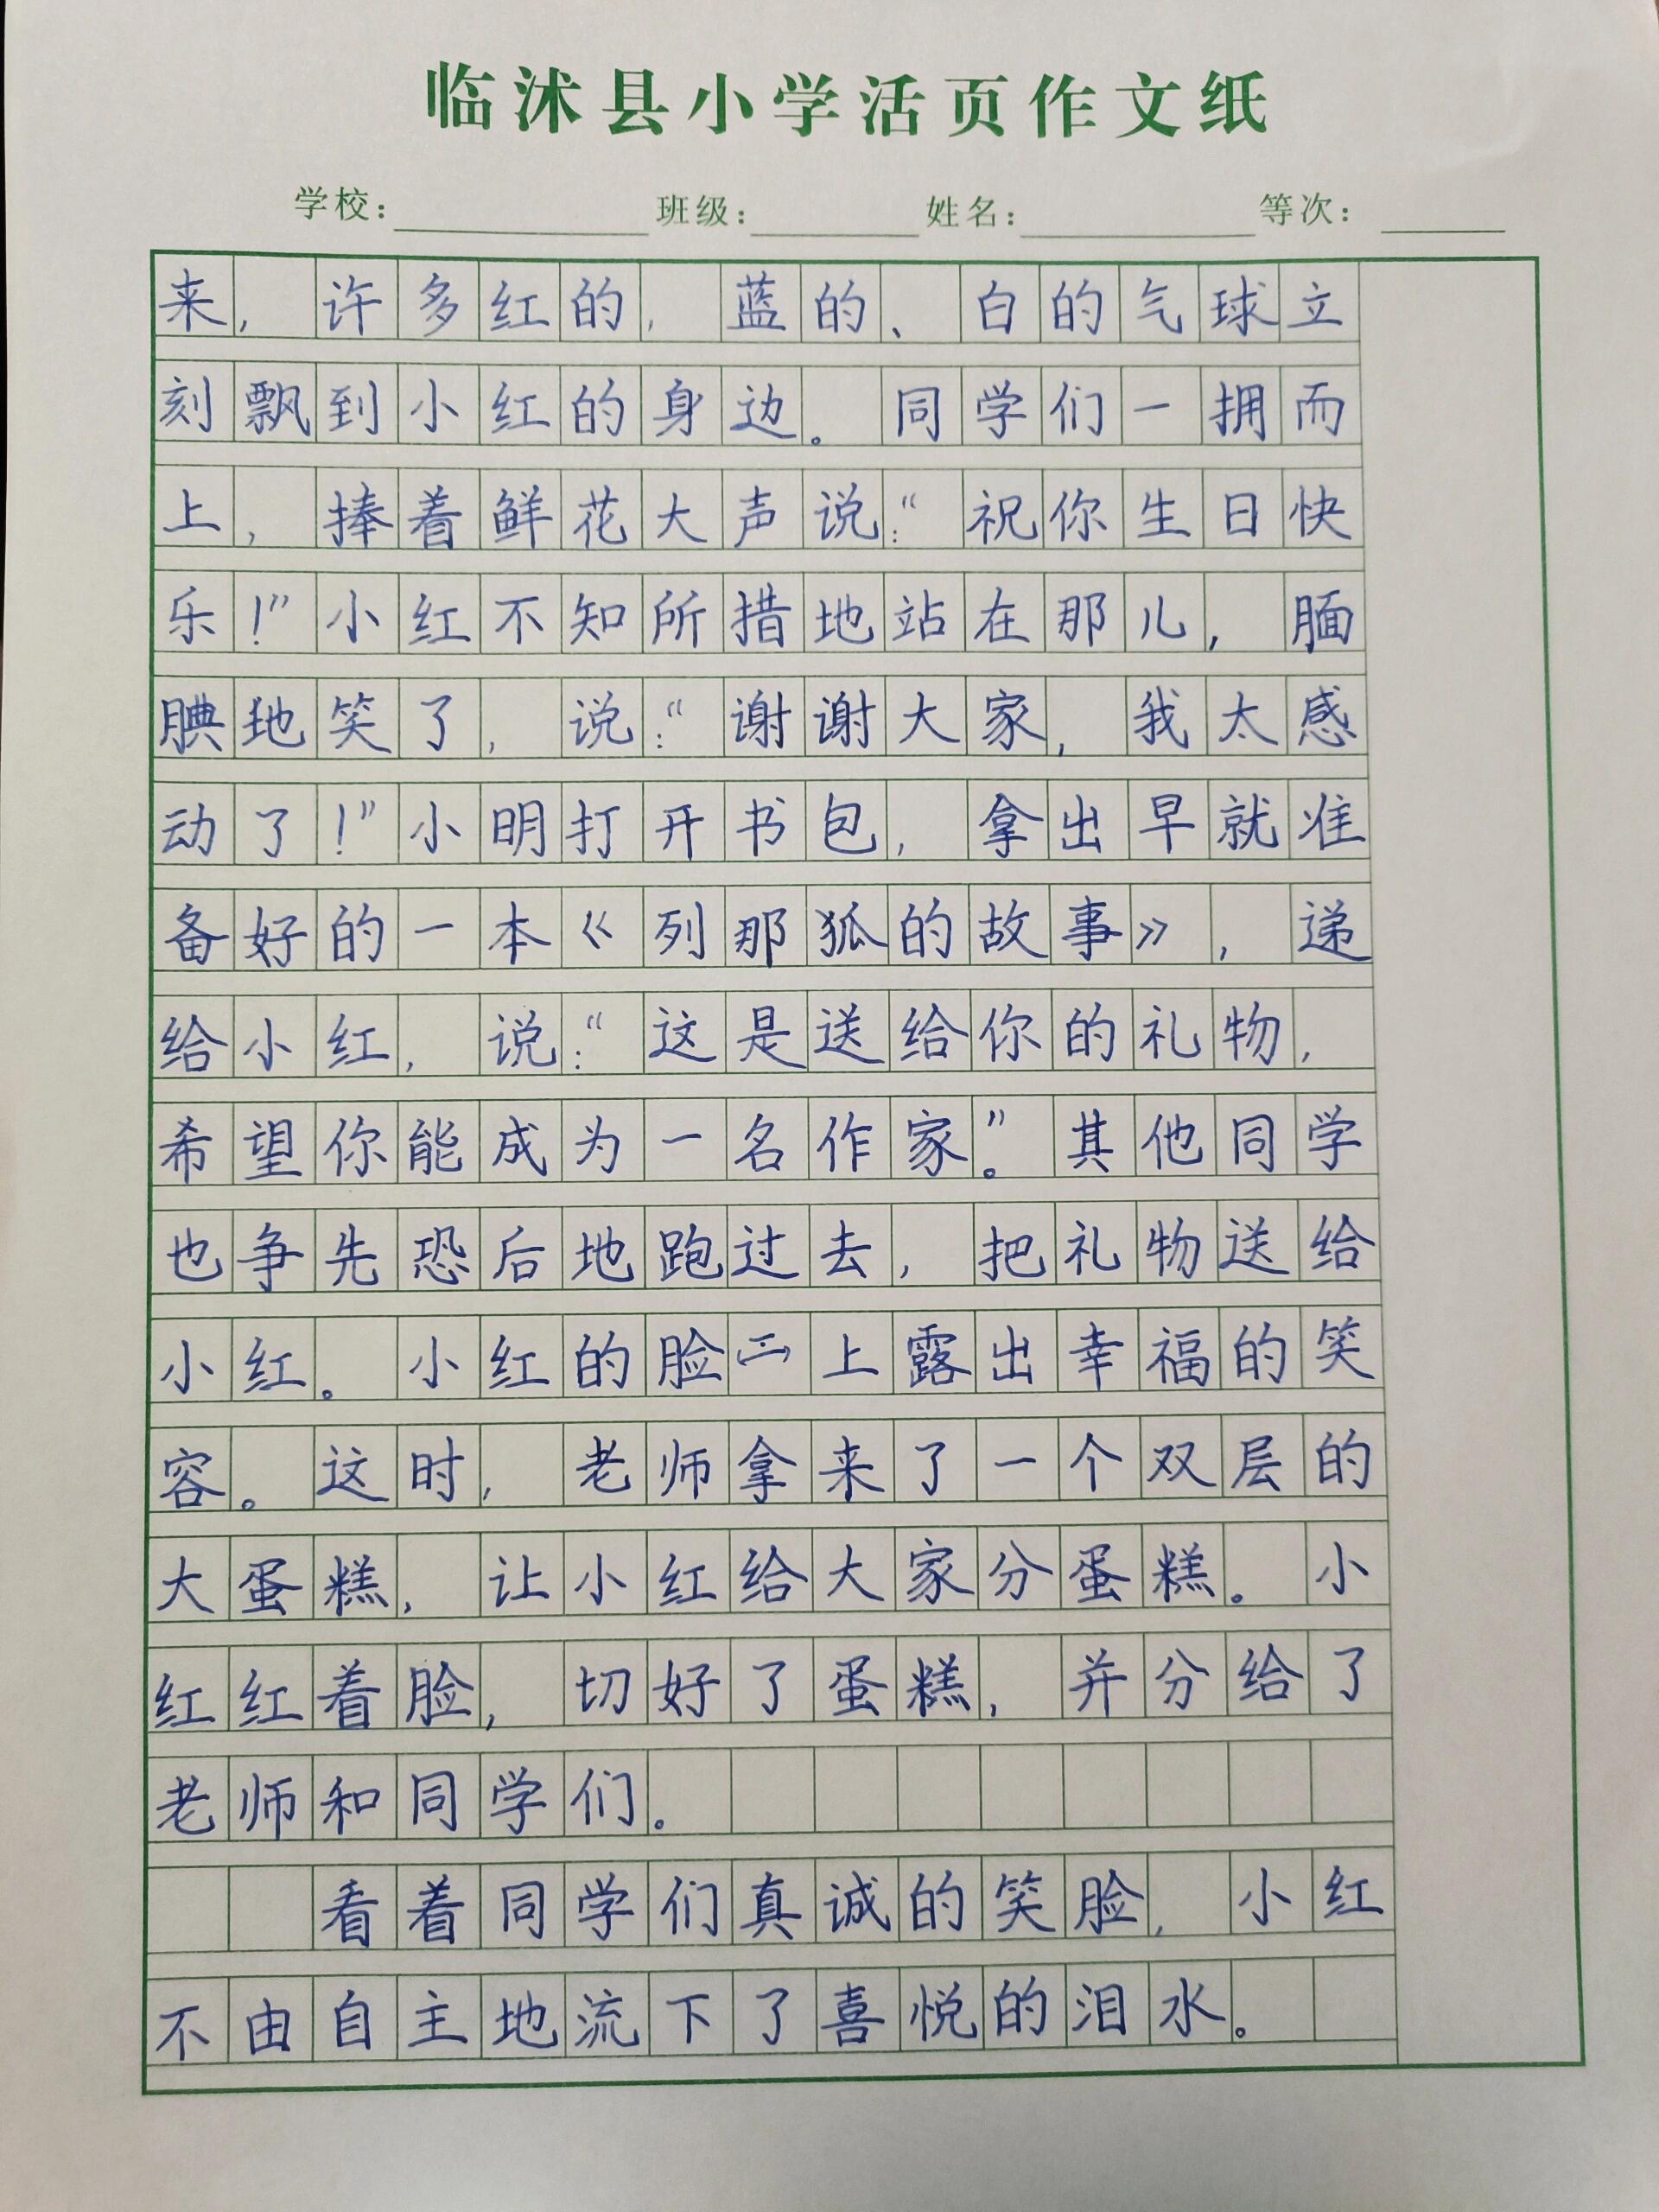 临沭县小学活页作文纸
学校： 班级： 姓名： 等次：
来，许多红的，蓝的、白的气球立
刻飘到小红的身边。同学们一拥而
上，捧着鲜花大声说：“祝你生日快
乐！”小红不知所措地站在那儿，腼
腆地笑了，说：“谢谢大家，我太感
动了！”小明打开书包，拿出早就准
备好的一本《列那狐的故事》，递
给小红，说：“这是送给你的礼物，
希望你能成为一名作家。”其他同学
也争先恐后地跑过去，把礼物送给
小红。小红的脸上露出幸福的笑
容。这时，老师拿来了一个双层的
大蛋糕，让小红给大家分蛋糕。小
红红着脸，切好了蛋糕，并分给了
老师和同学们。
看着同学们真诚的笑脸，小红
不由自主地流下了喜悦的泪水。